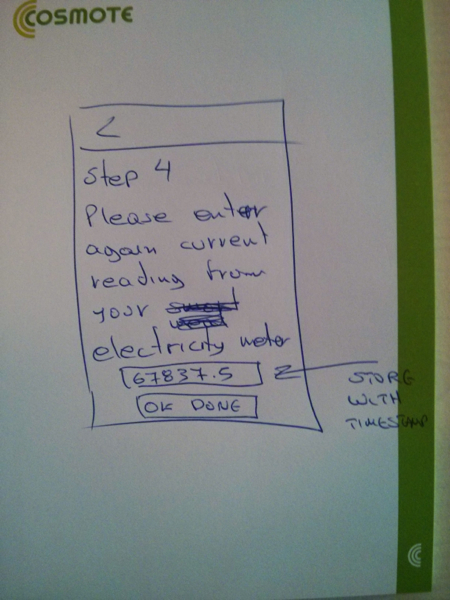 COSMOTE
<
Step 4
Please enter
again current
reading from
your
electricity meter
67837.5
OK DONE
STORE
WITH
TIMESTAMP